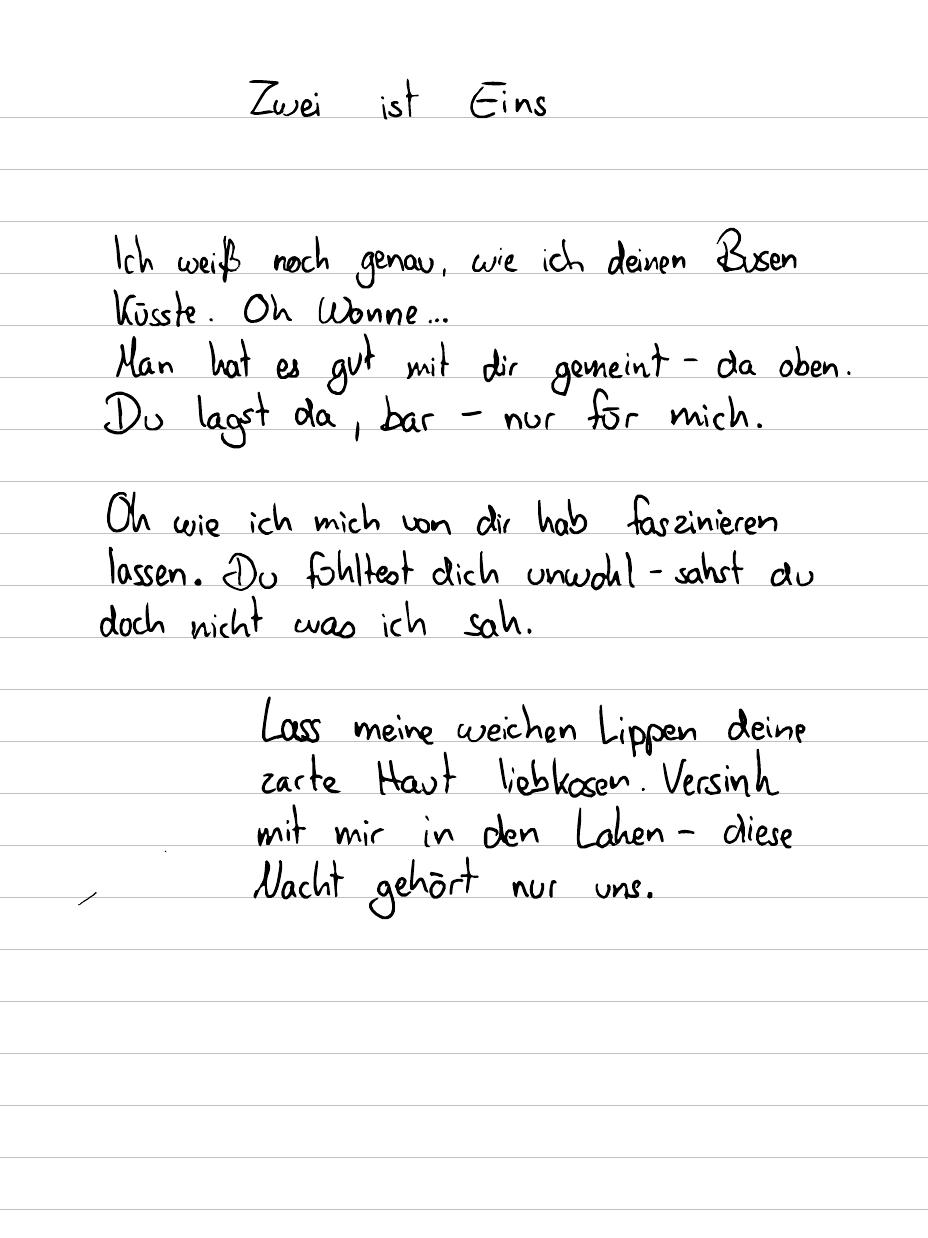 Zwei ist Eins
Ich weiß noch genau, wie ich deinen Busen
küsste. Oh Wonne...
Man hat es gut mit dir gemeint - da oben.
Du lagst da, bar - nur für mich.
Oh wie ich mich von dir hab faszinieren
lassen. Du fühltest dich unwohl - sahst du
doch nicht was ich sah.
Lass meine weichen Lippen deine
zarte Haut liebkosen. Versink
mit mir in den Laken - diese
Nacht gehört nur uns.